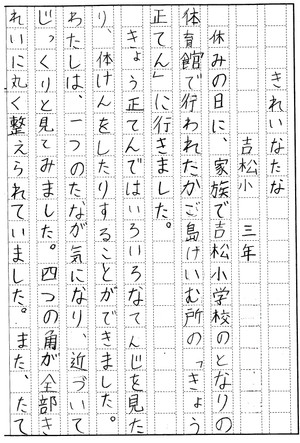 きれいなたな
吉松小　三年
休みの日に、家族で吉松小学校のとなりの
体育館で行われたかご島けいむ所の「きょう
正てん」に行きました。
きょう正てんではいろいろなてんじを見た
り、体けんをしたりすることができました。
わたしは、一つのたなが気になり、近づいて
じっくりと見てみました。四つの角が全部き
れいに丸く整えられていました。また、たて